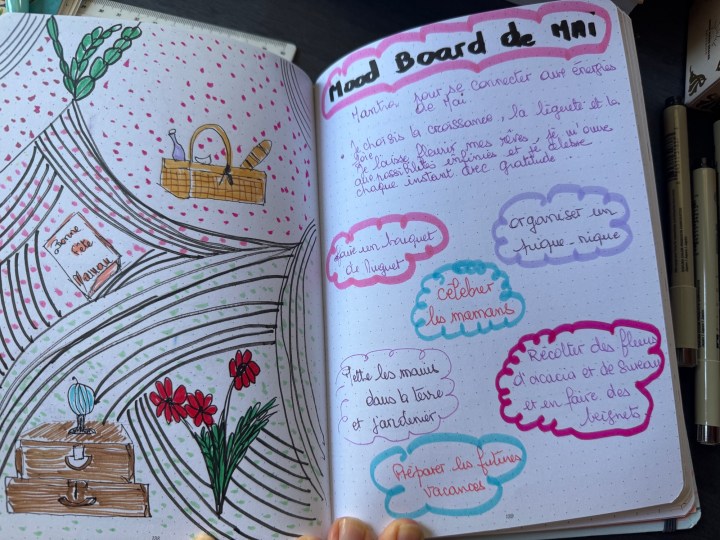 Bonne
fête
Maman
Mood Board de MAI
Mantra pour se connecter aux énergies
de Mai
• Je choisis la croissance, la légèreté et la
joie
Je laisse fleurir mes rêves, je m'ouvre
aux possibilités infinies et je célèbre
chaque instant avec gratitude...
Faire un bouquet
de Muguet
organiser un
pique-nique
célébrer
les mamans
Mettre les mains
dans la terre
et jardiner
Récolter des fleurs
d'acacia et de Sureau
et en faire des
beignets
Préparer les futures
vacances